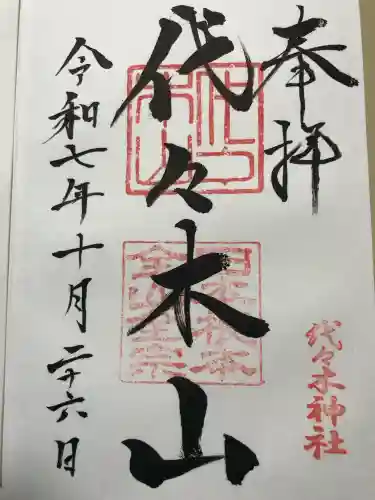 奉拝
代々木神社
代々木山
令和七年十月二十六日